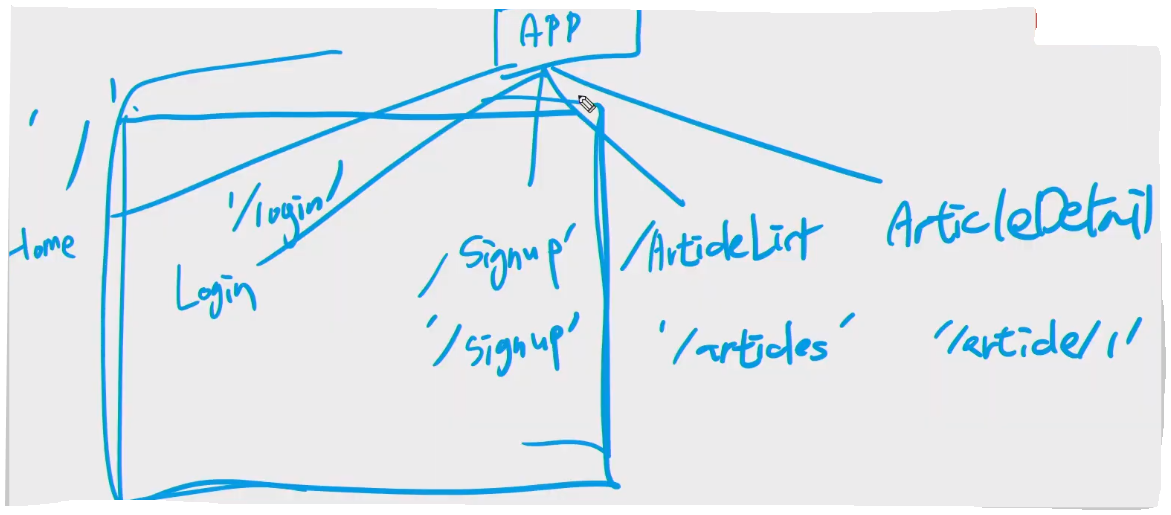 APP
' / '
Home
'/login/
Login
/ Signup'
'/signup'
/ArticleList
'/articles'
ArticleDetail
'/article/1'